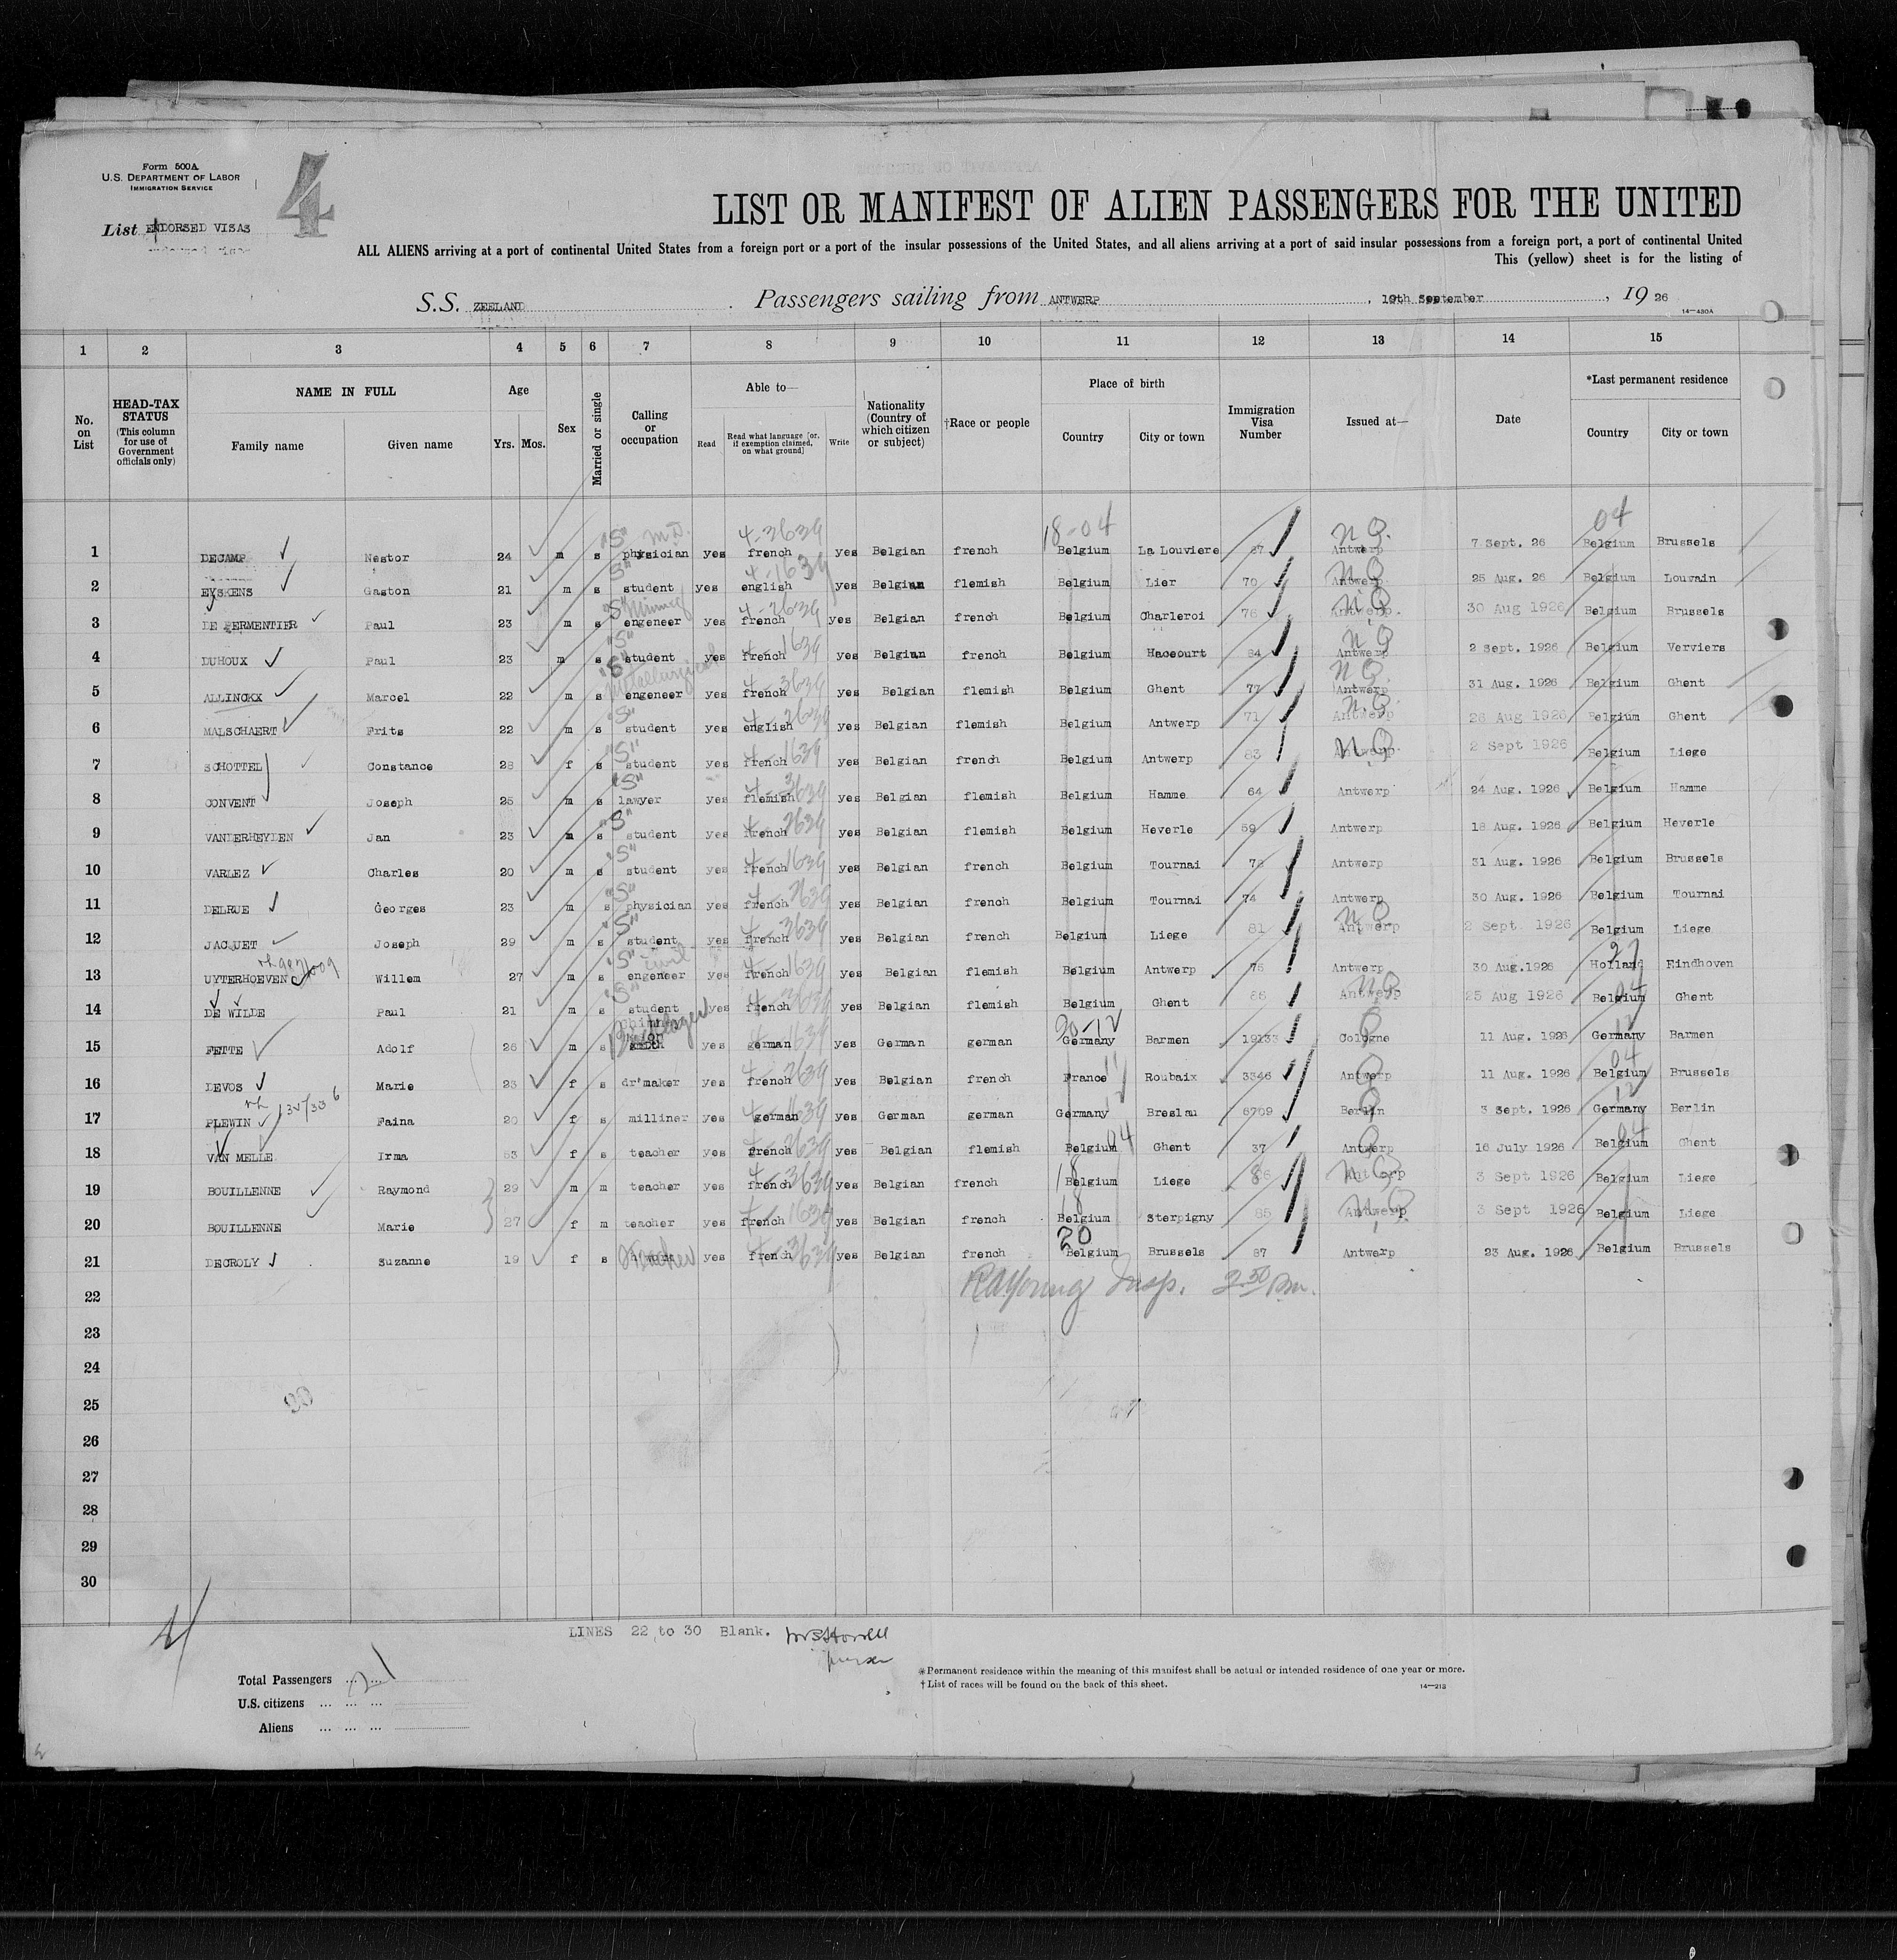 Form 500A
U.S. DEPARTMENT OF LABOR
IMMIGRATION SERVICE
4
List ENDORSED VISAS
LIST OR MANIFEST OF ALIEN PASSENGERS FOR THE UNITED
ALL ALIENS arriving at a port of continental United States from a foreign port or a port of the insular possessions of the United States, and all aliens arriving at a port of said insular possessions from a foreign port, a port of continental United
This (yellow) sheet is for the listing of
S.S. ZEELAND Passengers sailing from ANTWERP, 10th September, 1926
14—430A
1 2 3 4 5 6 7 8 9 10 11 12 13 14 15
No. on List
HEAD-TAX STATUS (This column for use of Government officials only)
NAME IN FULL Family name Given name
Age Yrs. Mos.
Sex
Married or single
Calling or occupation
Able to— Read Read what language [or, if exemption claimed, on what ground] Write
Nationality (Country of which citizen or subject)
†Race or people
Place of birth Country City or town
Immigration Visa Number
Issued at—
Date
*Last permanent residence Country City or town
"S" M.D. 4-3639 18-04 N Q. 04
1 DECAMP Nestor 24 m s physician yes french yes Belgian french Belgium La Louviere 67 Antwerp 7 Sept. 26 Belgium Brussels
2 EYSKENS Gaston 21 m s student yes english yes Belgian flemish Belgium Lier 70 Antwerp 25 Aug. 26 Belgium Louvain
3 DE PERMENTIER Paul 23 m s engeneer yes french yes Belgian french Belgium Charleroi 76 Antwerp. 30 Aug 1926 Belgium Brussels
4 DUHOUX Paul 23 m s student yes french yes Belgian french Belgium Haccourt 84 Antwerp 2 Sept. 1926 Belgium Verviers
5 ALLINCKX Marcel 22 m s engeneer yes french yes Belgian flemish Belgium Ghent 77 Antwerp 31 Aug. 1926 Belgium Ghent
6 MALSCHAERT Frits 22 m s student yes english yes Belgian flemish Belgium Antwerp 71 Antwerp 26 Aug 1926 Belgium Ghent
7 SCHOTTEL Constance 28 f s student yes french yes Belgian french Belgium Antwerp 83 Antwerp 2 Sept 1926 Belgium Liege
8 CONVENT Joseph 25 m s lawyer yes flemish yes Belgian flemish Belgium Hamme 64 Antwerp 24 Aug. 1926 Belgium Hamme
9 VANDERHEYDEN Jan 23 m s student yes french yes Belgian flemish Belgium Heverle 59 Antwerp 18 Aug. 1926 Belgium Heverle
10 VARLEZ Charles 20 m s student yes french yes Belgian french Belgium Tournai 78 Antwerp 31 Aug. 1926 Belgium Brussels
11 DELRUE Georges 23 m s physician yes french yes Belgian french Belgium Tournai 74 Antwerp 30 Aug. 1926 Belgium Tournai
12 JACQUET Joseph 29 m s student yes french yes Belgian french Belgium Liege 81 Antwerp 2 Sept. 1926 Belgium Liege
13 UYTERHOEVEN Willem 27 m s engeneer yes french yes Belgian flemish Belgium Antwerp 75 Antwerp 30 Aug.1926 Holland Eindhoven
14 DE WILDE Paul 21 m s student yes french yes Belgian flemish Belgium Ghent 66 Antwerp 25 Aug 1926 Belgium Ghent
20-12
15 FETTE Adolf 26 m s yes german yes German german Germany Barmen 19133 Cologne 11 Aug. 1926 Germany Barmen
16 DEVOS Marie 23 f s dr'maker yes french yes Belgian french France Roubaix 3346 Antwerp 11 Aug. 1926 Belgium Brussels
17 PLEWIN Faina 20 f s milliner yes german yes German german Germany Breslau 6709 Berlin 3 Sept. 1926 Germany Berlin
18 VAN MELLE Irma 53 f s teacher yes french yes Belgian flemish Belgium Ghent 37 Antwerp 16 July 1926 Belgium Ghent
19 BOUILLENNE Raymond 29 m m teacher yes french yes Belgian french Belgium Liege 86 Antwerp 3 Sept 1926 Belgium Liege
20 BOUILLENNE Marie 27 f m teacher yes french yes Belgian french Belgium Sterpigny 85 Antwerp 3 Sept 1926 Belgium Liege
20
21 DECROLY Suzanne 19 f s yes french yes Belgian french Belgium Brussels 87 Antwerp 23 Aug. 1926 Belgium Brussels
22 RAYoung Insp. 2.50 pm.
23
24
25
26
27
28
29
30
LINES 22 to 30 Blank.
purser
Total Passengers ... ... 21
U.S. citizens ... ... ...
Aliens ... ... ...
*Permanent residence within the meaning of this manifest shall be actual or intended residence of one year or more.
†List of races will be found on the back of this sheet.
14—213